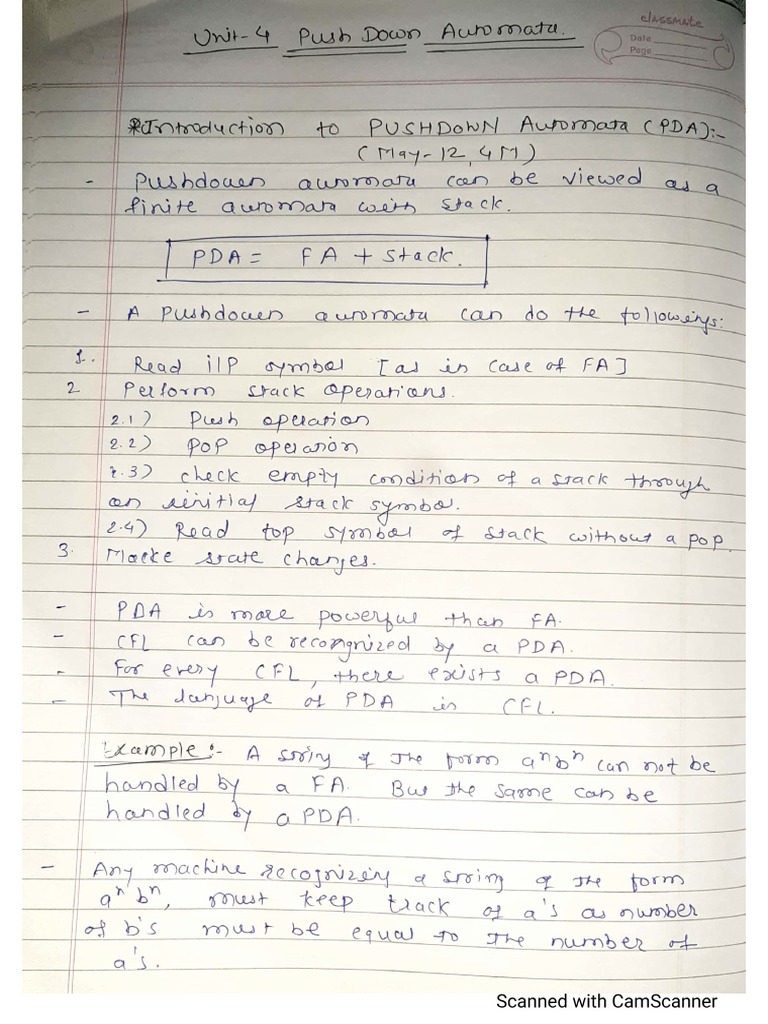 classmate
Date
Page
Unit-4 Push Down Automata.
*Introduction to PUSHDOWN Automata (PDA):-
(May-12, 4M)
- Pushdown automata can be viewed as a
finite automata with stack.
PDA = FA + Stack.
- A Pushdown automata can do the followings:
1. Read i/P symbol [as in case of FA]
2 Perform stack operations.
2.1) Push operation
2.2) POP operation
2.3) check empty condition of a stack through
an initial stack symbol.
2.4) Read top symbol of stack without a pop.
3. Make state changes.
- PDA is more powerful than FA.
- CFL can be recognized by a PDA.
- For every CFL, there exists a PDA.
- The language of PDA is CFL.
Example:- A string of the form aⁿbⁿ can not be
handled by a FA. But the same can be
handled by a PDA.
- Any machine recognizing a string of the form
aⁿbⁿ, must keep track of a's as number
of b's must be equal to the number of
a's.
Scanned with CamScanner